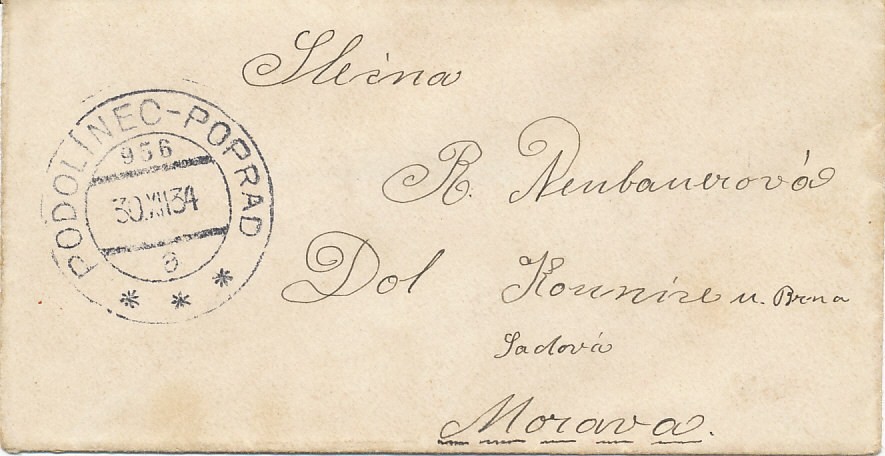 PODOLÍNEC-POPRAD
956
30.XII.34
a
Slečna
R. Neubauerová
Dol Kounice u. Brna
Sadová
Morava.